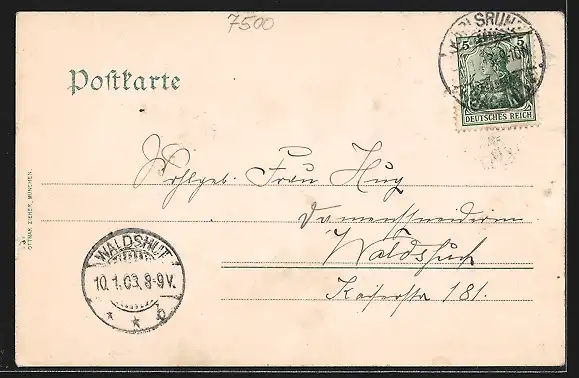 7500
Postkarte
KARLSRUHE
5 5
DEUTSCHES REICH
Wohlgeb. Frau Hug
Damenschneiderin
Waldshut
Kaiserstr 181.
OTTMAR ZIEHER, MÜNCHEN.
WALDSHUT
10.1.03. 8-9V.
* * b